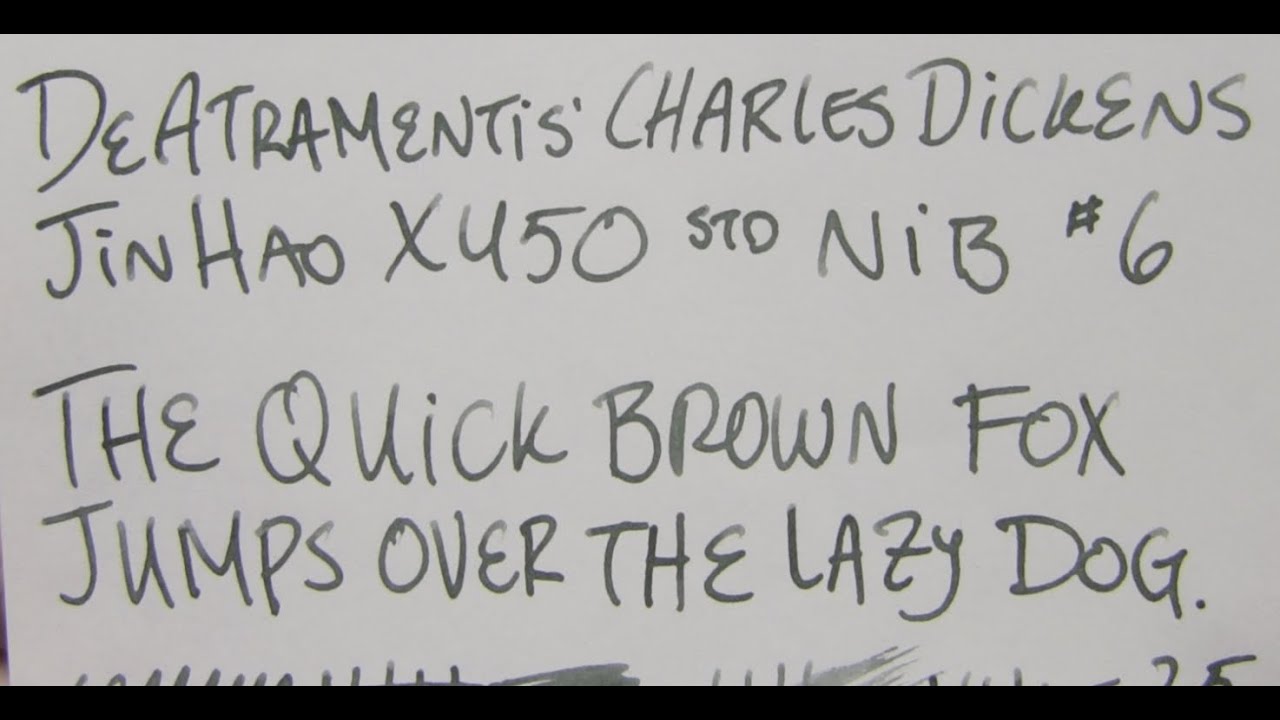 DeAtramentis' Charles Dickens
JinHao X450 STD NiB #6
The Quick Brown Fox
Jumps Over The Lazy Dog.